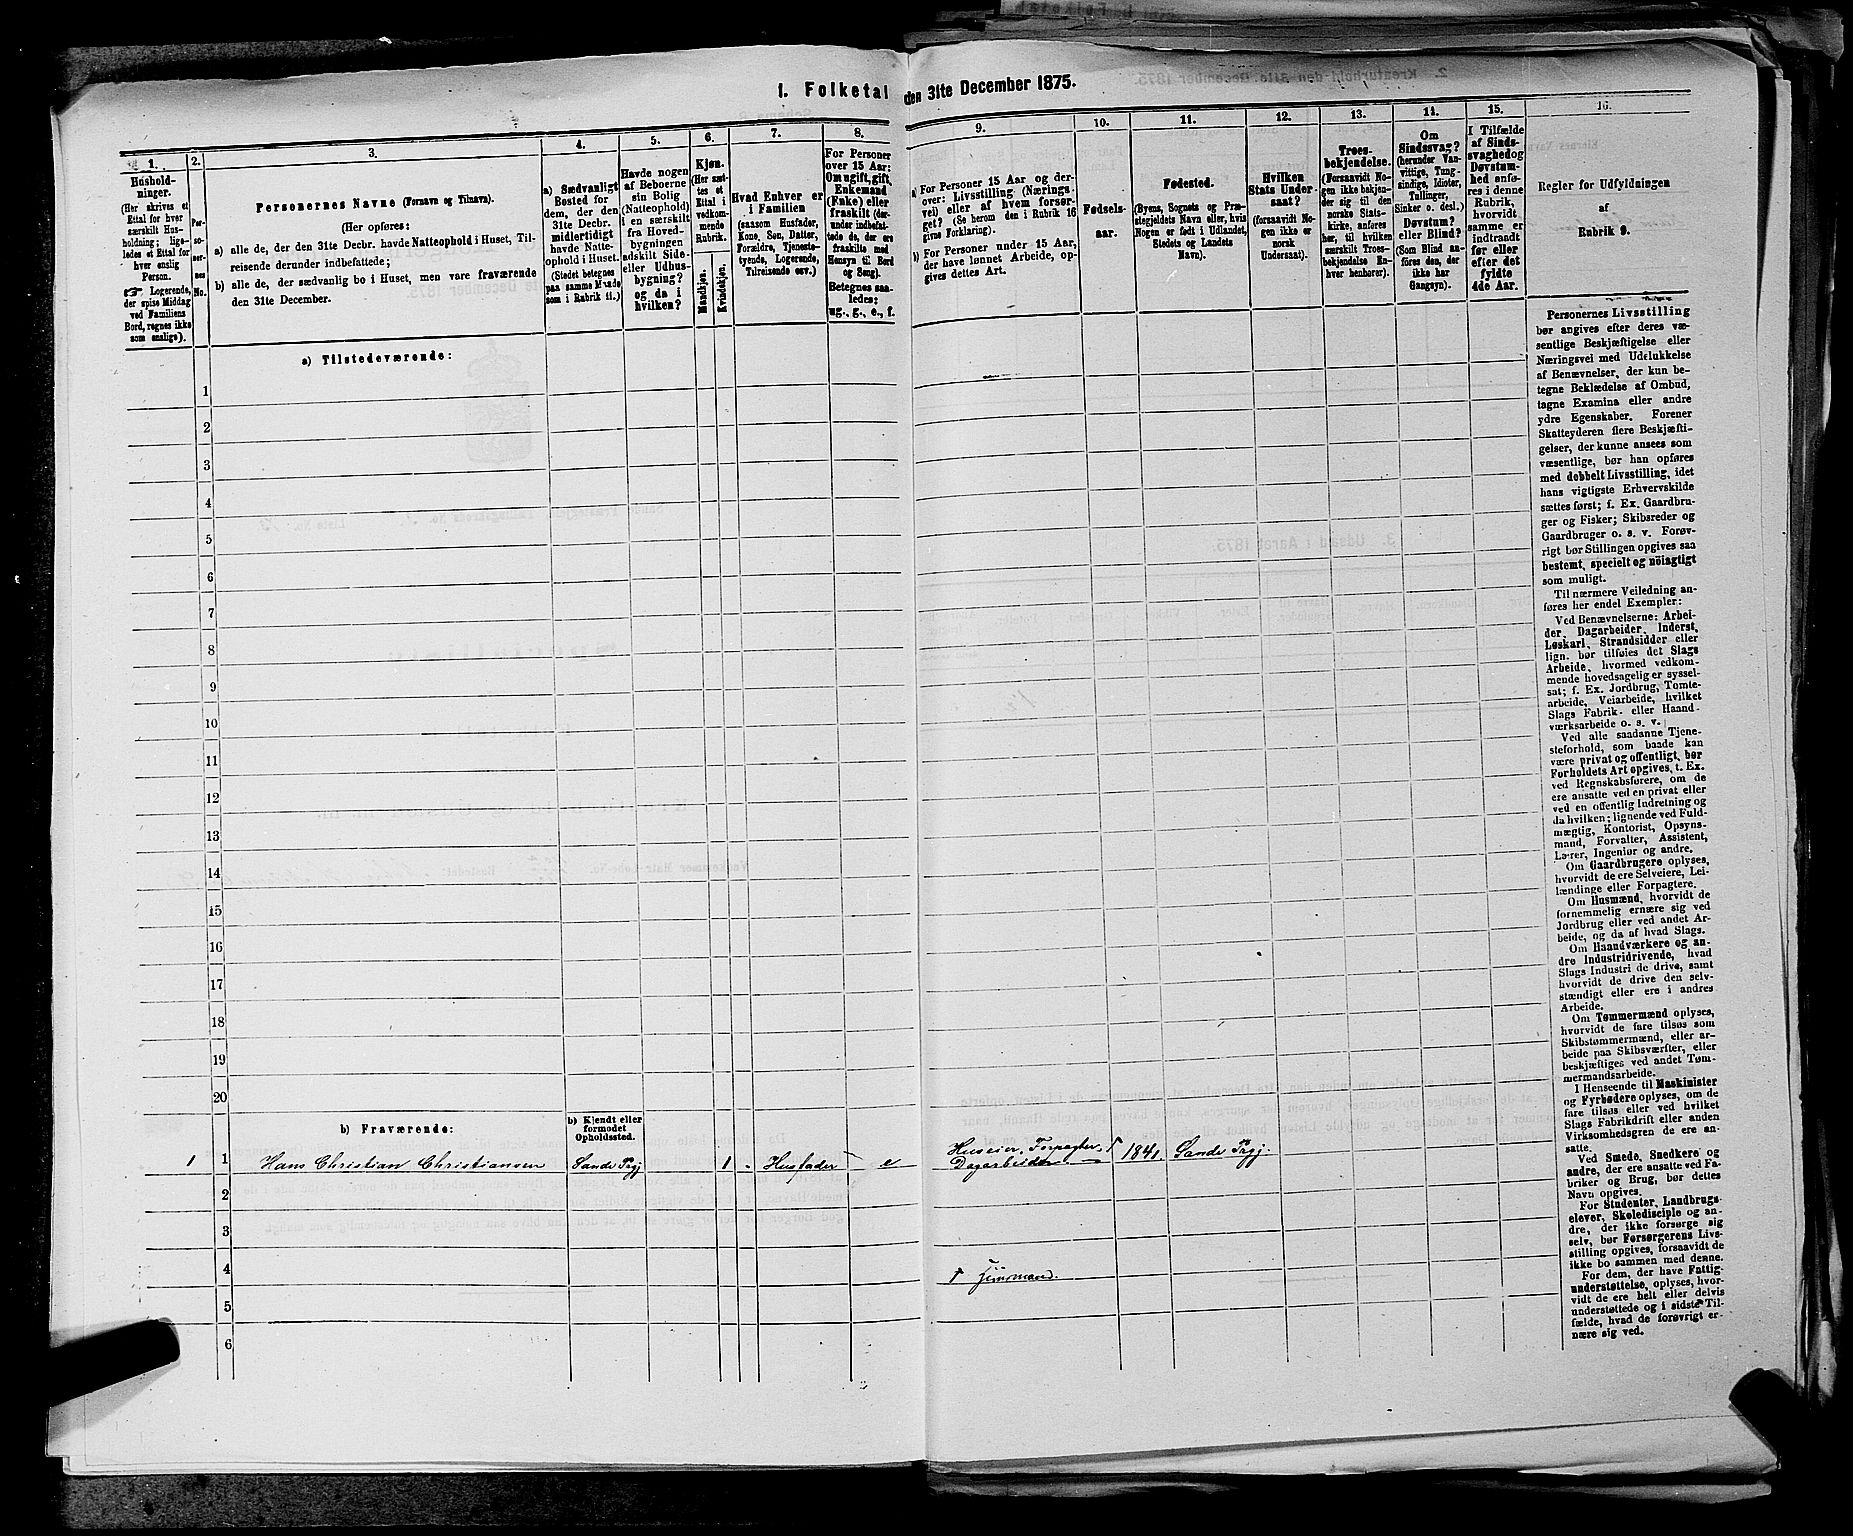 1. Folketal den 31te December 1875.
1.
Hushold-
ninger.
(Her skrives et
Ettal for hver
særskilt Hus-
holdning; lige-
ledes et Ettal for
hver enslig
Person.
☞ Logerende,
der spise Middag
ved Familiens
Bord, regnes ikke
som enslige).
2.
Per-
so-
ner-
nes
No.
3.
Personernes Navne (Fornavn og Tilnavn).
(Her opføres:
a) alle de, der den 31te Decbr. havde Natteophold i Huset, Til-
reisende derunder indbefattede;
b) alle de, der sædvanlig bo i Huset, men vare fraværende
den 31te December.
4.
a) Sædvanligt
Bosted for
dem, der den
31te Decbr.
midlertidigt
havde Natte-
ophold i Huset.
(Stedet betegnes
paa samme Maade
som i Rubrik 11.)
5.
Havde nogen
af Beboerne
sin Bolig
(Natteophold)
i en særskilt
fra Hoved-
bygningen
adskilt Side-
eller Udhus-
bygning?
og da i
hvilken?
6.
Kjøn.
(Her sæt-
tes et
Ettal i
vedkom-
mende
Rubrik.
Mandkjøn.
Kvindekjøn.
7.
Hvad Enhver er
i Familien
(saasom Husfader,
Kone, Søn, Datter,
Forældre, Tjeneste-
tyende, Logerende,
Tilreisende osv.)
8.
For Personer
over 15 Aar:
Om ugift, gift,
Enkemand
(Enke) eller
fraskilt (der-
under indbefat-
tede de, der ere
fraskilte med
Hensyn til Bord
og Seng).
Betegnes saa-
ledes:
ug., g., e., f.
9.
a) For Personer 15 Aar og der-
over: Livsstilling (Nærings-
vei) eller af hvem forsør-
get? (Se herom den i Rubrik 16
givne Forklaring).
b) For Personer under 15 Aar,
der have lønnet Arbeide, op-
gives dettes Art.
10.
Fødsels-
aar.
11.
Fødested.
(Byens, Sognets og Præ-
stegjeldets Navn eller, hvis
Nogen er født i Udlandet,
Stedets og Landets
Navn).
12.
Hvilken
Stats Under-
saat?
(forsaavidt No-
gen ikke er
norsk
Undersaat).
13.
Troes-
bekjendelse.
(Forsaavidt No-
gen ikke bekjen-
der sig til den
norske Stats-
kirke, anføres
her, til hvilken
særskilt Troes-
bekjendelse En-
hver henhører).
14.
Om
Sindssvag?
(herunder Van-
vittige, Tung-
sindige, Idioter,
Tullinger,
Sinker o. desl.)
Døvstum?
eller Blind?
(Som Blind an-
føres den, der
ikke har
Gangsyn).
15.
I Tilfælde
af Sinds-
svaghed og
Døvstum-
hed anfø-
res i denne
Rubrik,
hvorvidt
samme er
indtraadt
før eller
efter det
fyldte
4de Aar.
16.
Regler for Udfyldningen
af
Rubrik 9.
a) Tilstedeværende:
1
2
3
4
5
6
7
8
9
10
11
12
13
14
15
16
17
18
19
20
b) Fraværende:
b) Kjendt eller
formodet
Opholdssted.
1 1 Hans Christian Christiansen Sande Pgj 1 - Husfader e Huseier, Forpagter, 1841 Sande Pgj.
Dagarbeider
2
3
4 Jinsmand.
5
6
Personernes Livsstilling
bør angives efter deres væ-
sentlige Beskjæftigelse eller
Næringsvei med Udelukkelse
af Benævnelser, der kun be-
tegne Beklædelse af Ombud,
tagne Examina eller andre
ydre Egenskaber. Forener
Skatteyderen flere Beskjæfti-
gelser, der kunne ansees som
væsentlige, bør han opføres
med dobbelt Livsstilling, idet
hans vigtigste Erhvervskilde
sættes først; f. Ex. Gaardbru-
ger og Fisker; Skibsreder og
Gaardbruger o. s. v. Forøv-
rigt bør Stillingen opgives saa
bestemt, specielt og nöiagtigt
som muligt.
Til nærmere Veiledning an-
føres her endel Exempler:
Ved Benævnelserne: Arbei-
der, Dagarbeider, Inderst,
Løskarl, Strandsidder eller
lign. bør tilføies det Slags
Arbeide, hvormed vedkom-
mende hovedsagelig er syssel-
sat; f. Ex. Jordbrug, Tomte-
arbeide, Veiarbeide, hvilket
Slags Fabrik- eller Haand-
værksarbeide o. s. v.
Ved alle saadanne Tjene-
steforhold, som baade kan
være privat og offentligt, bør
Forholdets Art opgives, t. Ex.
ved Regnskabsførere, om de
ere ansatte ved en privat eller
ved en offentlig Indretning og
da hvilken; lignende ved Fuld-
mægtig, Kontorist, Opsyns-
mand, Forvalter, Assistent,
Lærer, Ingeniør og andre.
Om Gaardbrugere oplyses,
hvorvidt de ere Selveiere, Lei-
lændinge eller Forpagtere.
Om Husmænd, hvorvidt de
fornemmelig ernære sig ved
Jordbrug eller ved andet Ar-
beide, og da af hvad Slags.
Om Haandværkere og an-
dre Industridrivende, hvad
Slags Industri de drive, samt
hvorvidt de drive den selv-
stændigt eller ere i andres
Arbeide.
Om Tømmermænd oplyses,
hvorvidt de fare tilsøs som
Skibstømmermænd, eller ar-
beide paa Skibsværfter, eller
beskjæftiges ved andet Tøm-
mermandsarbeide.
I Henseende til Maskinister
og Fyrbødere oplyses, om de
fare tilsøs eller ved hvilket
Slags Fabrikdrift eller anden
Virksomhedsgren de ere an-
satte.
Ved Smede, Snedkere og
andre, der ere ansatte ved Fa-
briker og Brug, bør dettes
Navn opgives.
For Studenter, Landbrugs-
elever, Skoledisciple og an-
dre, der ikke forsørge sig
selv, bør Forsørgerens Livs-
stilling opgives, forsaavidt de
ikke bo sammen med denne.
For dem, der have Fattig-
understøttelse, oplyses, hvor-
vidt de ere helt eller delvis
understøttede og i sidste Til-
fælde, hvad de forøvrigt er-
nære sig ved.